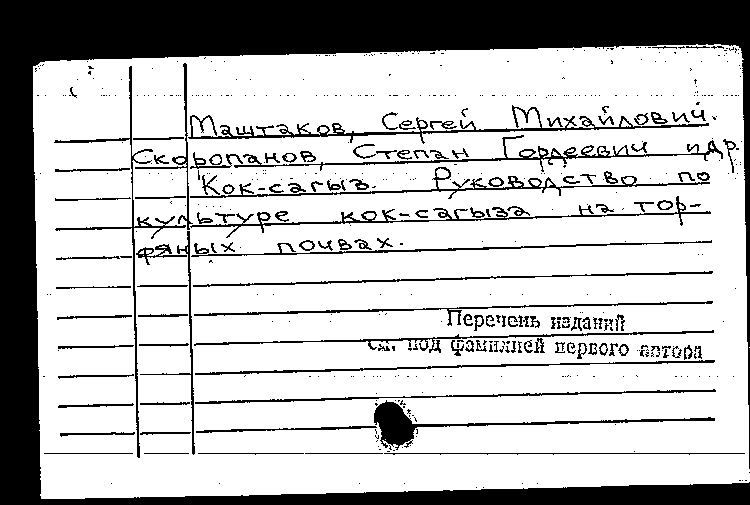 Маштаков, Сергей Михайлович.
Скоропанов, Степан Гордеевич и др.
Кок-сагыз. Руководство по
культуре кок-сагыза на тор-
фяных почвах.
Перечень изданий
см. под фамилией первого автора